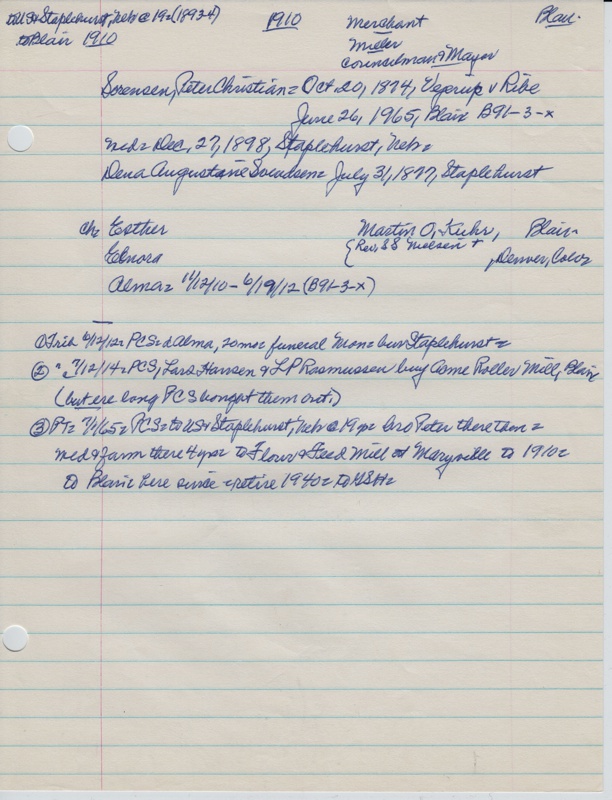 to US & Staplehurst, Nebr @ 19 = (1893-4) 1910 Merchant Blair
to Blair 1910 Miller
Counselman & Mayor
Sorensen, Peter Christian = Oct. 20, 1874, Vejrup v Ribe
June 26, 1965, Blair B91-3-x
md = Dec. 27, 1898, Staplehurst, Nebr =
Dena Augustane Svendsen = July 31, 1877, Staplehurst
ch: Esther Martin O. Kuhr, Blair
Elnora { Rev. SS Nielsen + , Denver, Colo
Alma = 11/12/10 - 6/19/12 (B91-3-x)
① Trib 6/12/12 = PCS = d Alma, 20 mo = funeral Mon = bur Staplehurst =
② " = 7/12/14 = PCS, Lars Hansen & LP Rasmussen buy Come Roller Mill, Blair
(but ere long PCS bought them out.)
③ PT = 7/1/65 = PCS = to US & Staplehurst, Nebr @ 19 yr = bro Peter there then =
md & farm there 4 yrs = to Flour & Feed Mill at Marysville to 1910 =
to Blair here since = retire 1940 =